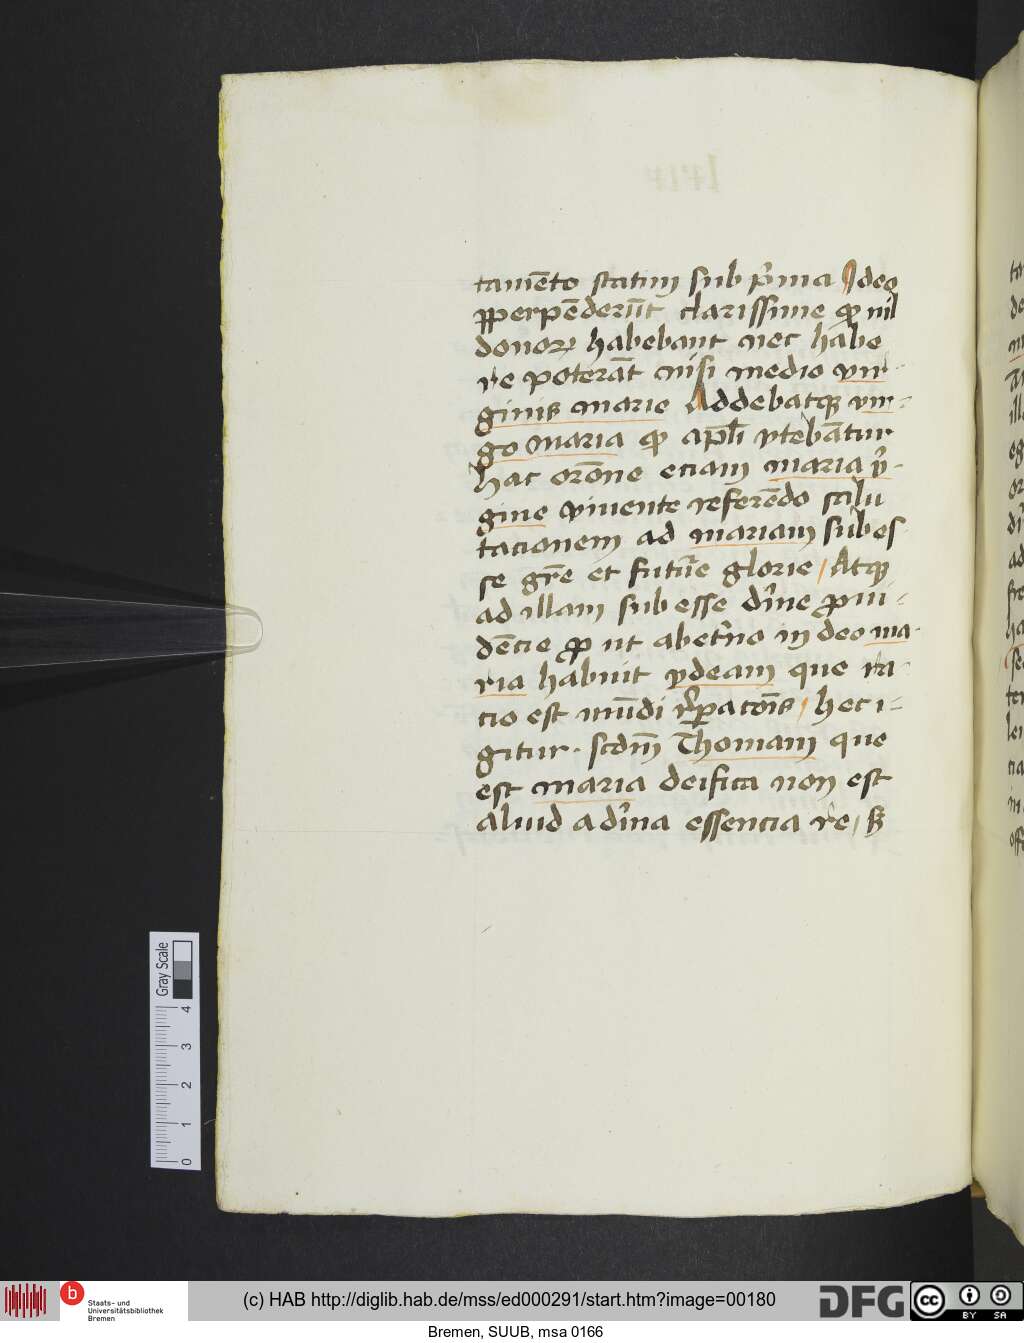 tame̅to statim sub p̓ma Ideo
ꝑperpe̅deru̅t clarissime ꝙ nil
donoꝝ habebant nec habe
re potera̅t nisi medio vir
ginis marie Addebatqꝫ vir-
go maria ꝙ ap̅li vteba̅tur
hac oro̅ne eciam maria v̓-
gine viuente refere̅do salu
tacionem ad mariam sub es
se gr̅e et future glorie / Atqꝫ
ad illam sub esse di̅ne ꝓui-
de̅cie ꝓ ut ab et̓no in deo ma-
ria habuit ydeam que ra-
cio est mu̅di r̓ꝑaco̅is / hec i-
gitur. scd̅m Thomam que
est maria deifica non est
aliud a di̅na essencia re / sꝫ
Gray Scale
4
3
2
1
0
b
Staats- und
Universitätsbibliothek
Bremen
(c) HAB http://diglib.hab.de/mss/ed000291/start.htm?image=00180
DFG
cc
BY SA
Bremen, SUUB, msa 0166